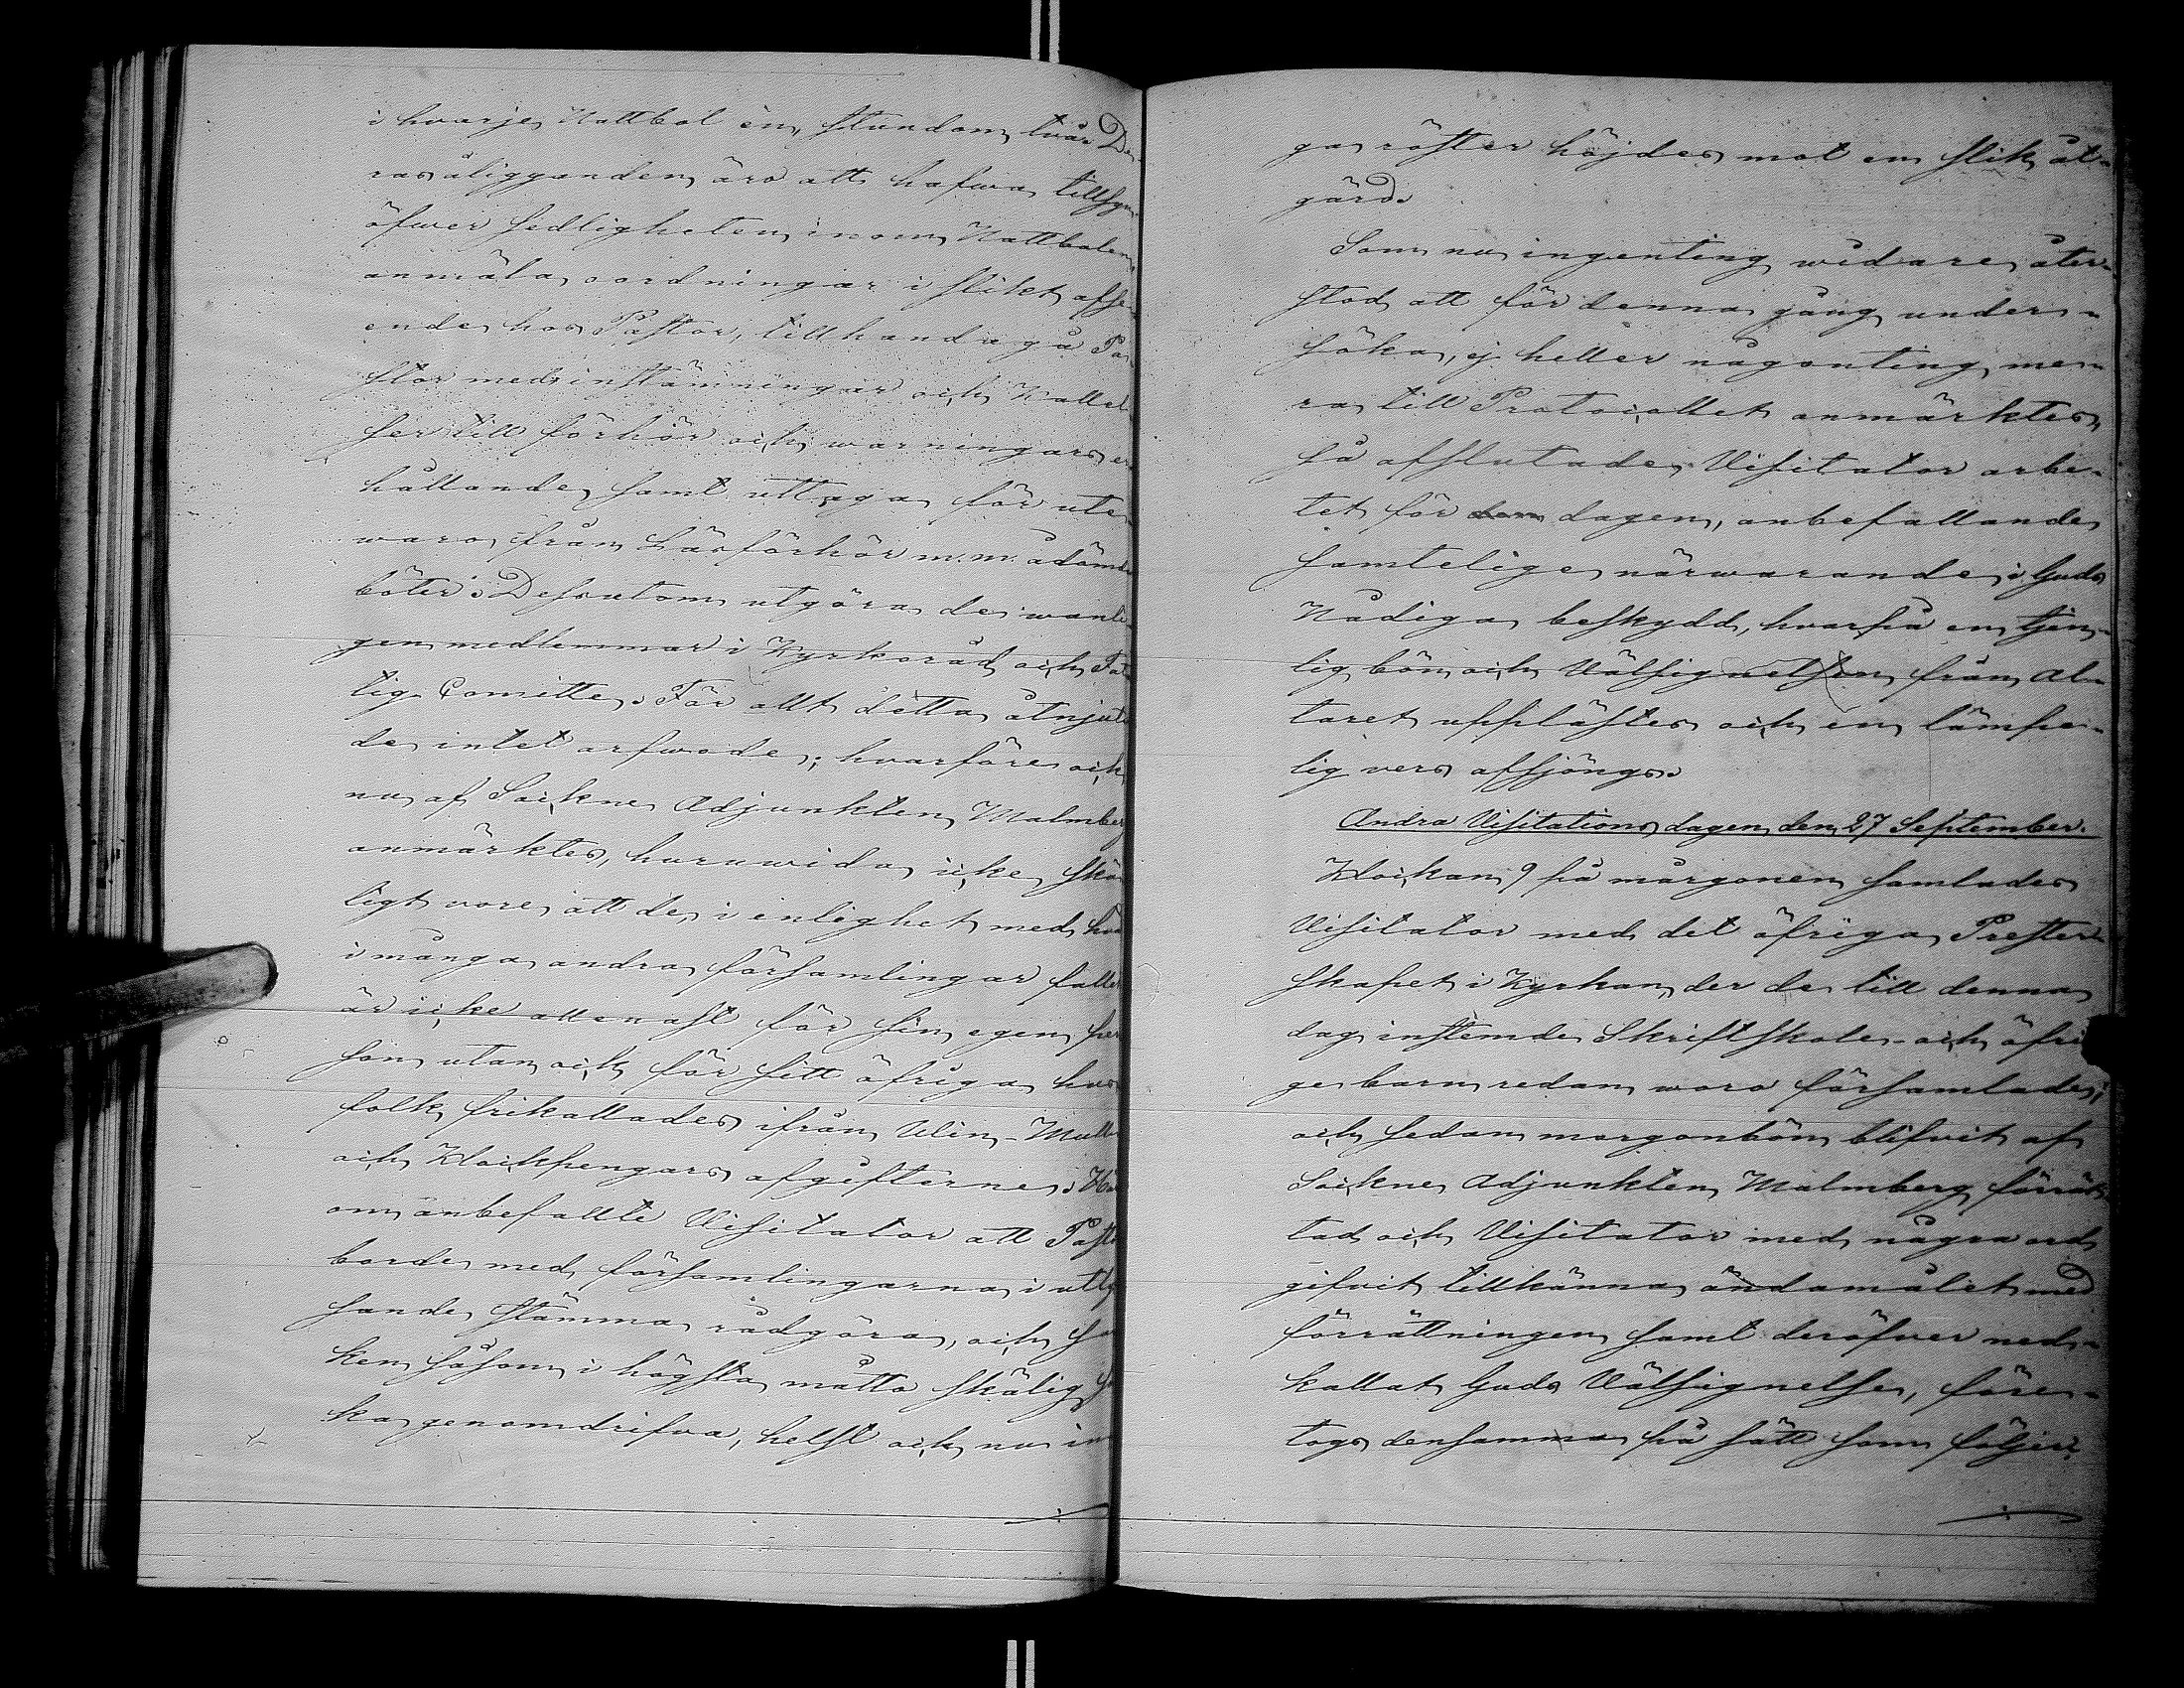 i hvarje Nattbol en, stundom tvår De-
ras åligganden äro att hafwa tillsyn
öfwer sedligheten inom Nattbolen,
anmäla oordningar i slikt afse-
ende hos Pastor, tillhandagå Pa-
stor med instämningar och Kallel-
ser till förhör och warningars er-
hållande samt uttaga för ute-
waro från Läsförhör m.m. ådömde
böter. Dessutom utgöra de wanli-
gen medlemmar i Kyrkoråd och Fat-
tig-Comitte. För allt detta åtnjuta
de intet arfwode; hvarföre ock
nu af Sockne Adjunkten Malmberg
anmärktes, huruwida icke skä-
ligt vore, att de, i enlighet med hvad
i många andra församlingar fallet
är icke allenast för sin egen per-
son utan ock för sitt öfriga hus-
folk frikallades ifrån Win-Mull-
och Klockpengars afgifterne. Här-
om anbefallte Visitator att Pastor
borde med församlingarna i utly-
sande stämma rådgöra, och sa-
ken såsom i högsta måtto skälig sö-
ka genomdrifva, helst och nu in-
ga röster höjdes mot en slik åt-
gärd.
Som nu ingenting widare åter-
stod att för denna gång under-
söka, ej heller någonting me-
ra till Protocollet anmärktes,
så afslutade Visitator arbe-
tet för dagen, anbefallande
samtelige närwarande i Guds
Nådiga beskydd, hvarpå en tjen-
lig bön och Välsignelsen från Al-
taret upplästes och en lämpe-
lig vers afsjöngs.
Andra Visitations dagen den 27 September.
Klockan 9 på morgonen samlades
Visitator med det öfriga Prester-
skapet i Kyrkan, der de till denna
dag instemde Skriftskole- och öfri-
ge barn redan woro församlade;
och sedan morgonbön blifvit af
Sockne Adjunkten Malmberg förrät-
tad och Visitator med några ord
gifvit tillkänna ändamålet med
förrättningen samt deröfver ned-
kallat Guds Välsignelse, före-
togs densamma på sätt som följer.